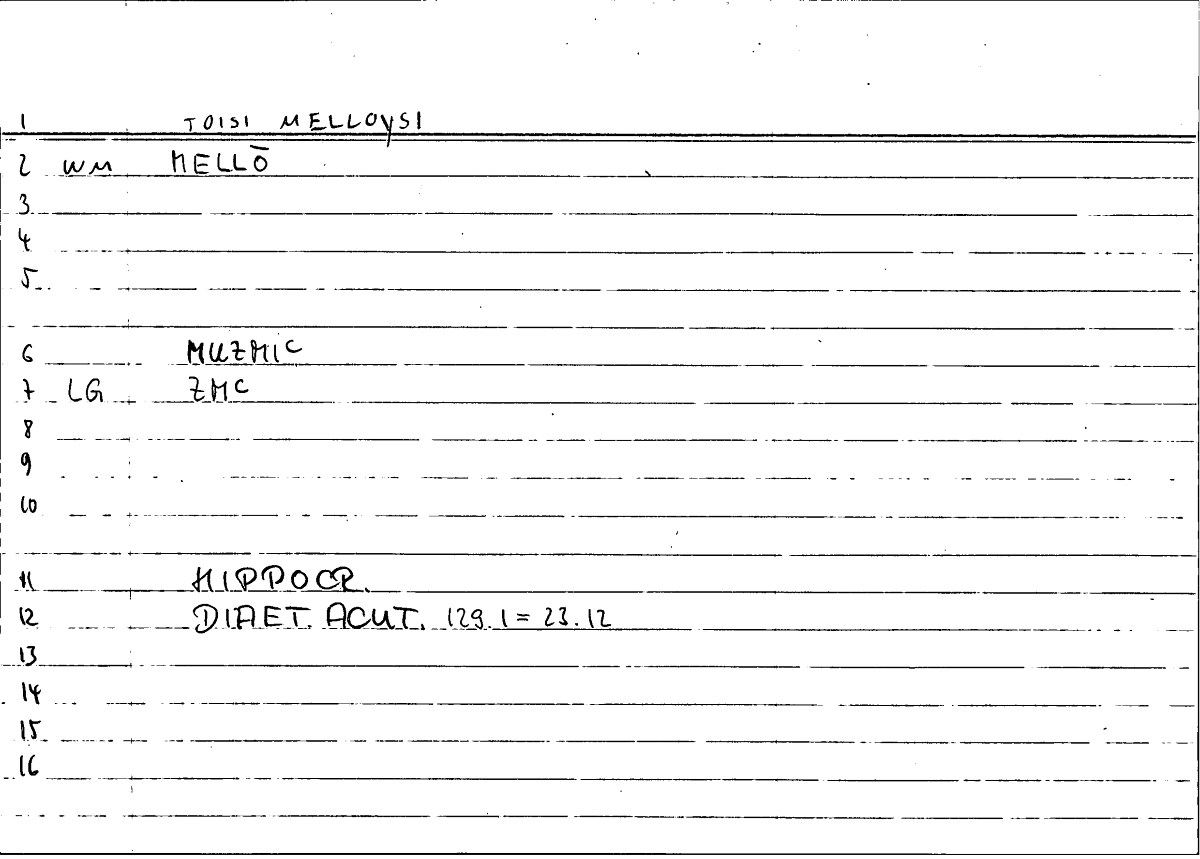 1 TOISI MELLOYSI
2 WM MELLŌ
3
4
5
6 MUZMIC
7 LG ZMC
8
9
10
11 HIPPOCR.
12 DIAET. ACUT. 129.1 = 23.12
13
14
15
16